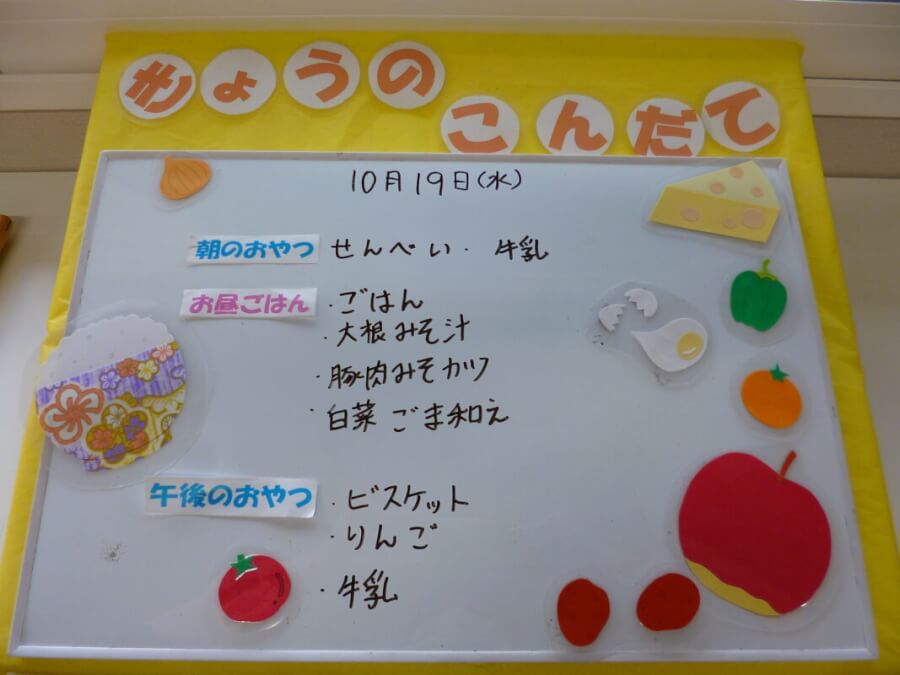 きょうの
こんだて
10月19日(水)
朝のおやつ せんべい・ 牛乳
お昼ごはん ・ごはん
・大根みそ汁
・豚肉みそカツ
・白菜ごま和え
午後のおやつ ・ビスケット
・りんご
・牛乳